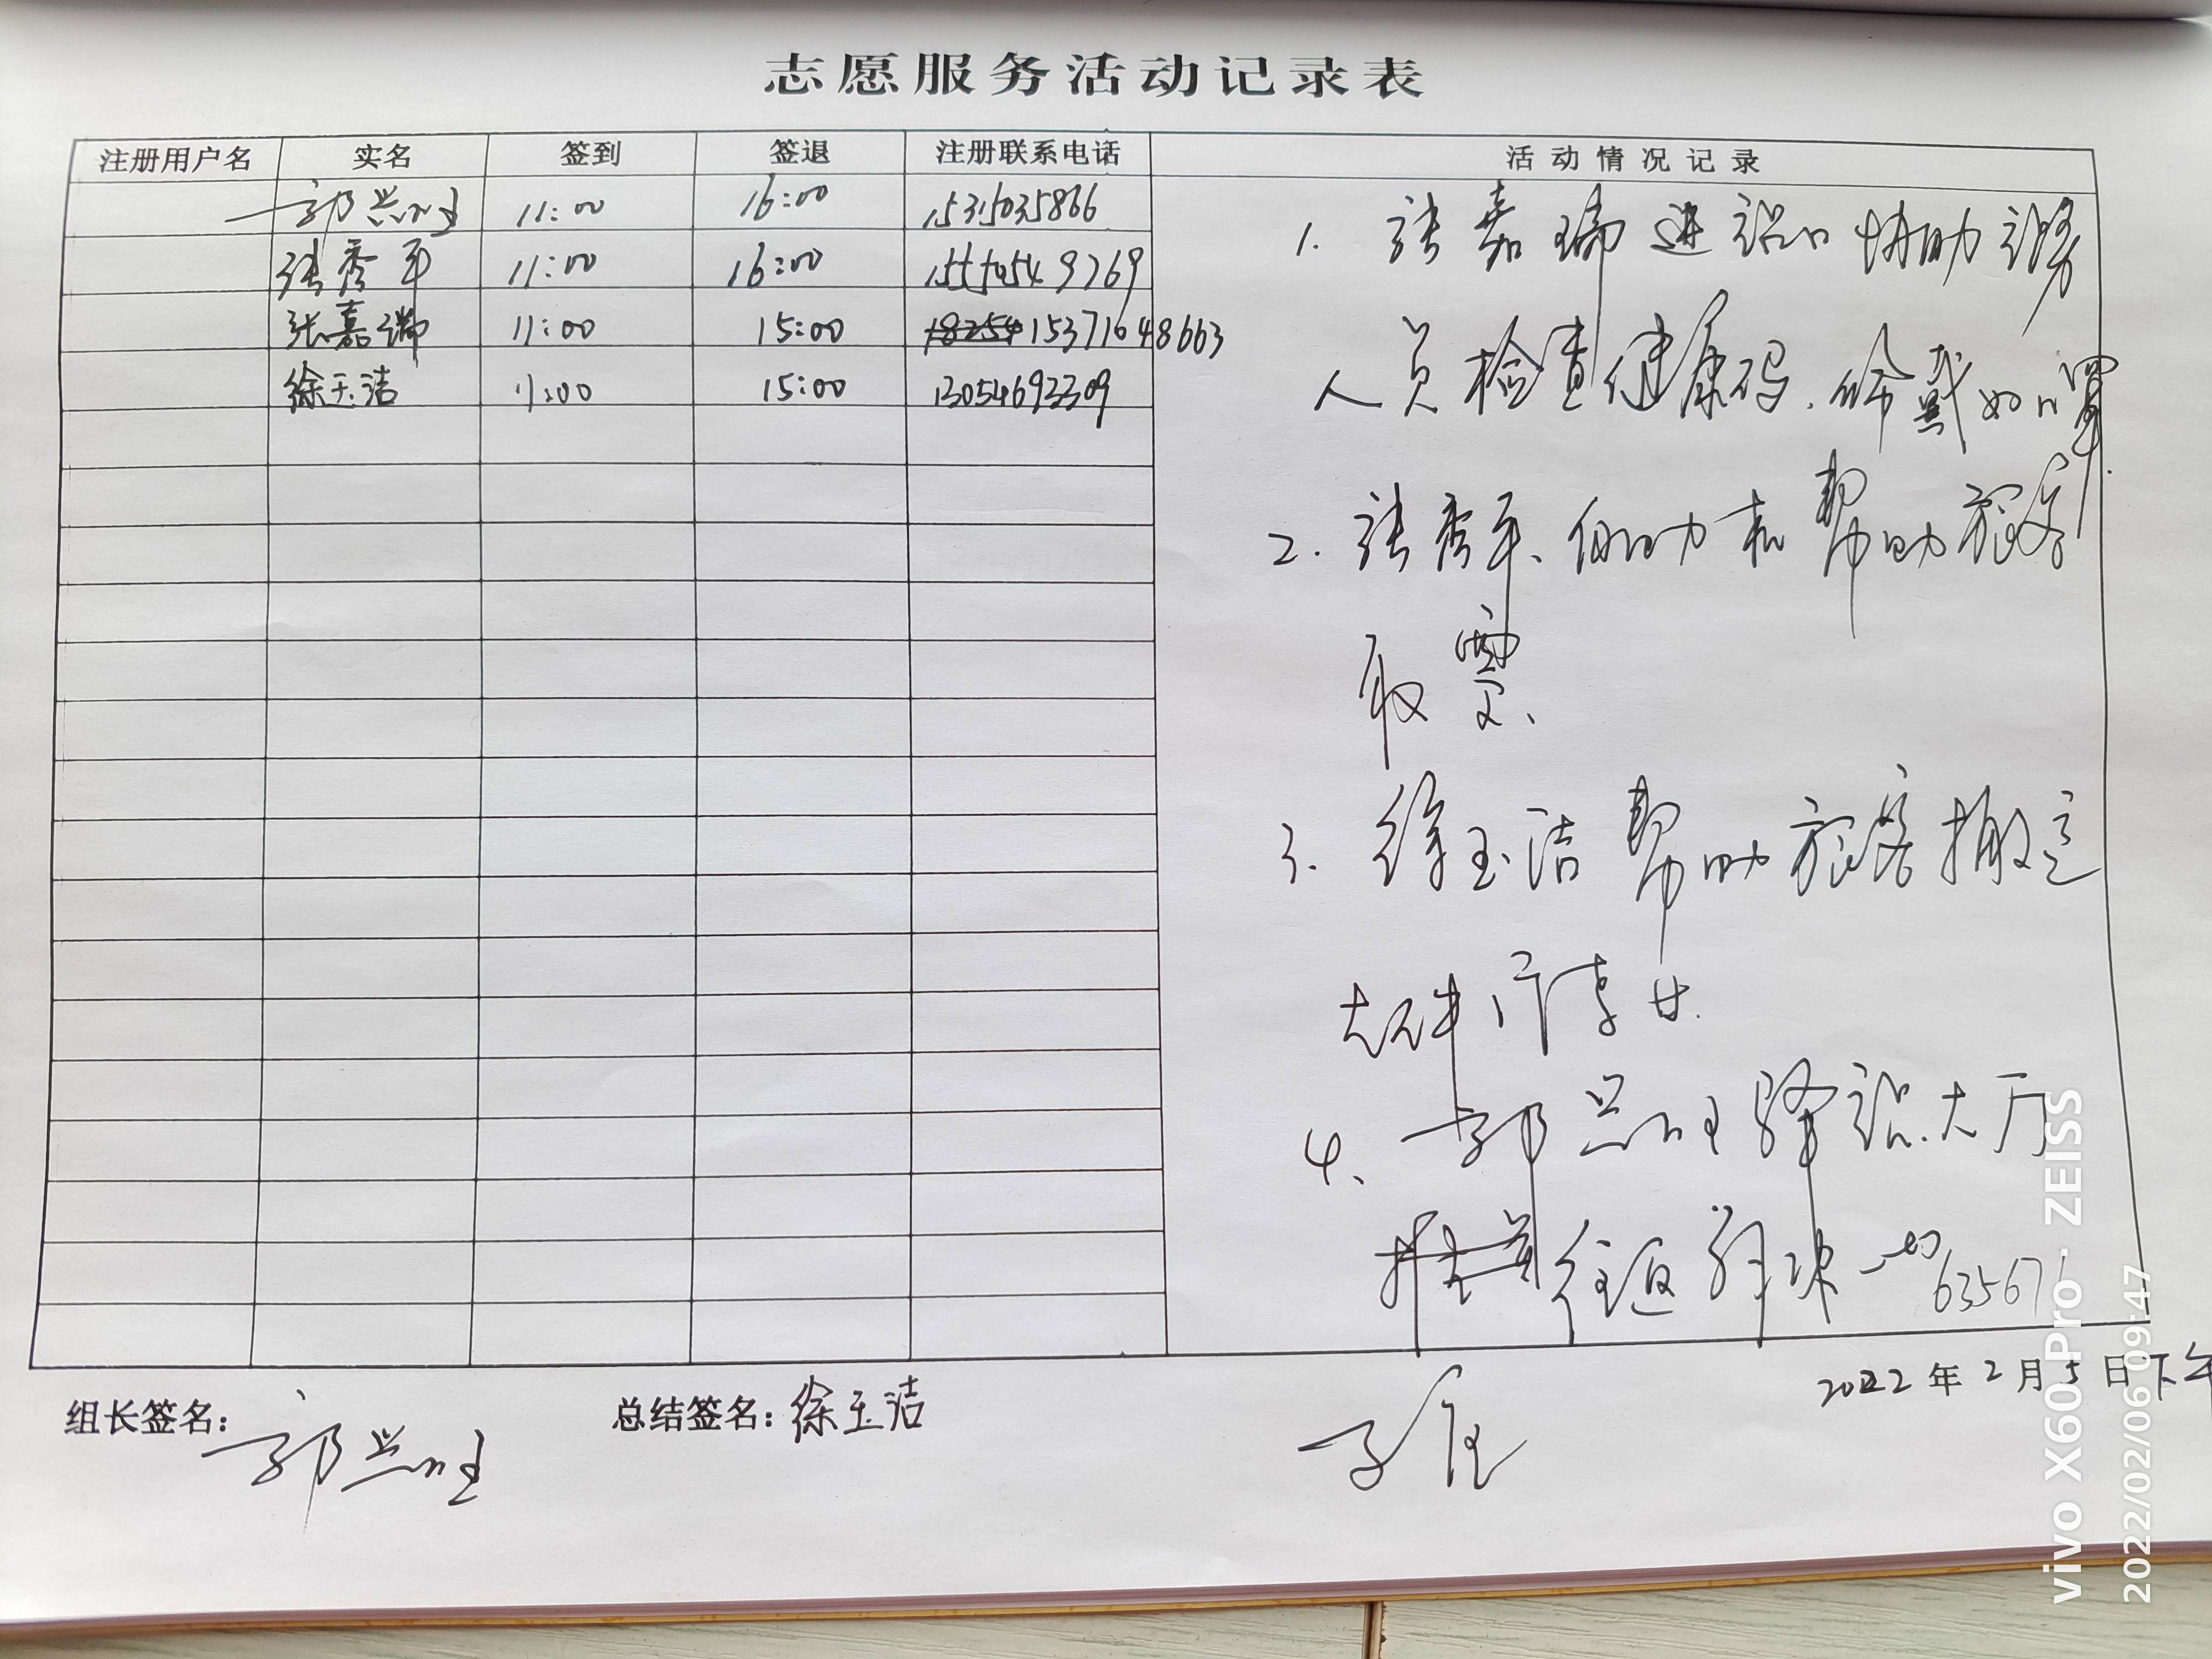 志愿服务活动记录表
注册用户名 实名 签到 签退 注册联系电话 活动情况记录
郭兴旺 11:00 16:00 15315035866
张秀平 11:00 16:00 9769
张嘉瑞 11:00 15:00 15371648663
徐玉洁 11:00 15:00 13054693309
1. 张嘉瑞进站口协助
人员检查健康码. 戴好口罩.
2. 张秀平、协助和帮助旅客
取票、
3. 徐玉洁帮助旅客搬运
大件行李
4、郭兴旺 大厅
往返
63567
2022年2月5日下午
组长签名:郭兴旺
总结签名:徐玉洁
vivo X60 Pro · ZEISS
2022/02/06 09:47